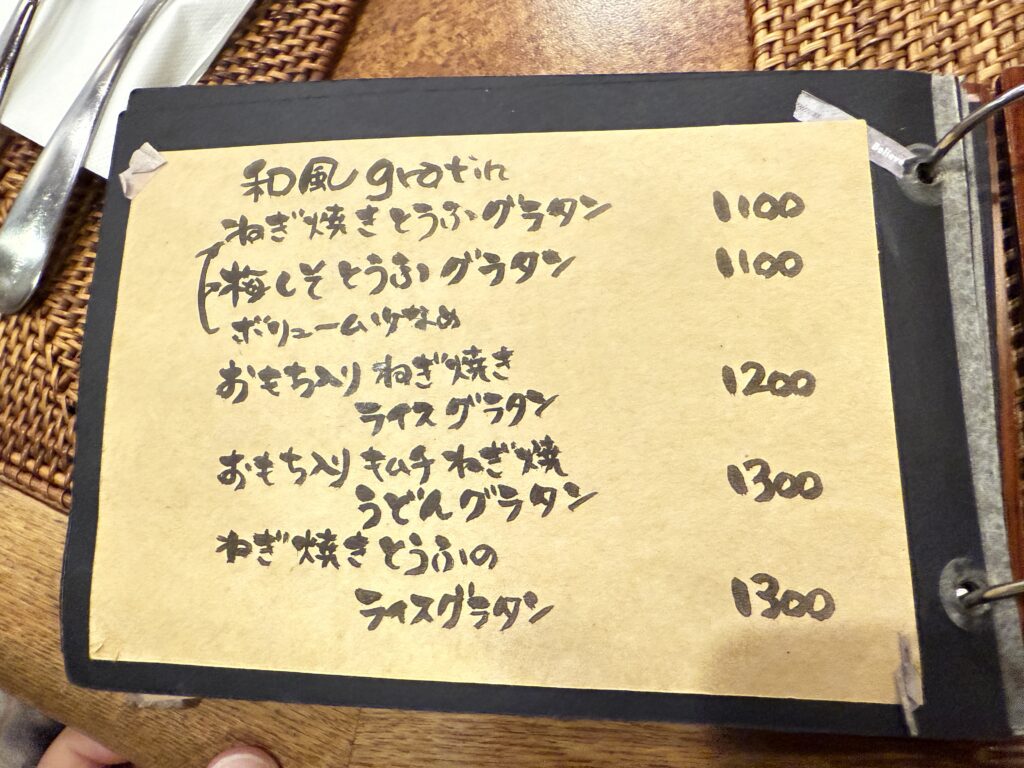 和風gratin
ねぎ焼きとうふグラタン 1100
梅しそとうふグラタン 1100
ボリュームひかえめ
おもち入りねぎ焼き 1200
ライスグラタン
おもち入りキムチねぎ焼 1300
うどんグラタン
ねぎ焼きとうふの
ライスグラタン 1300
Believe